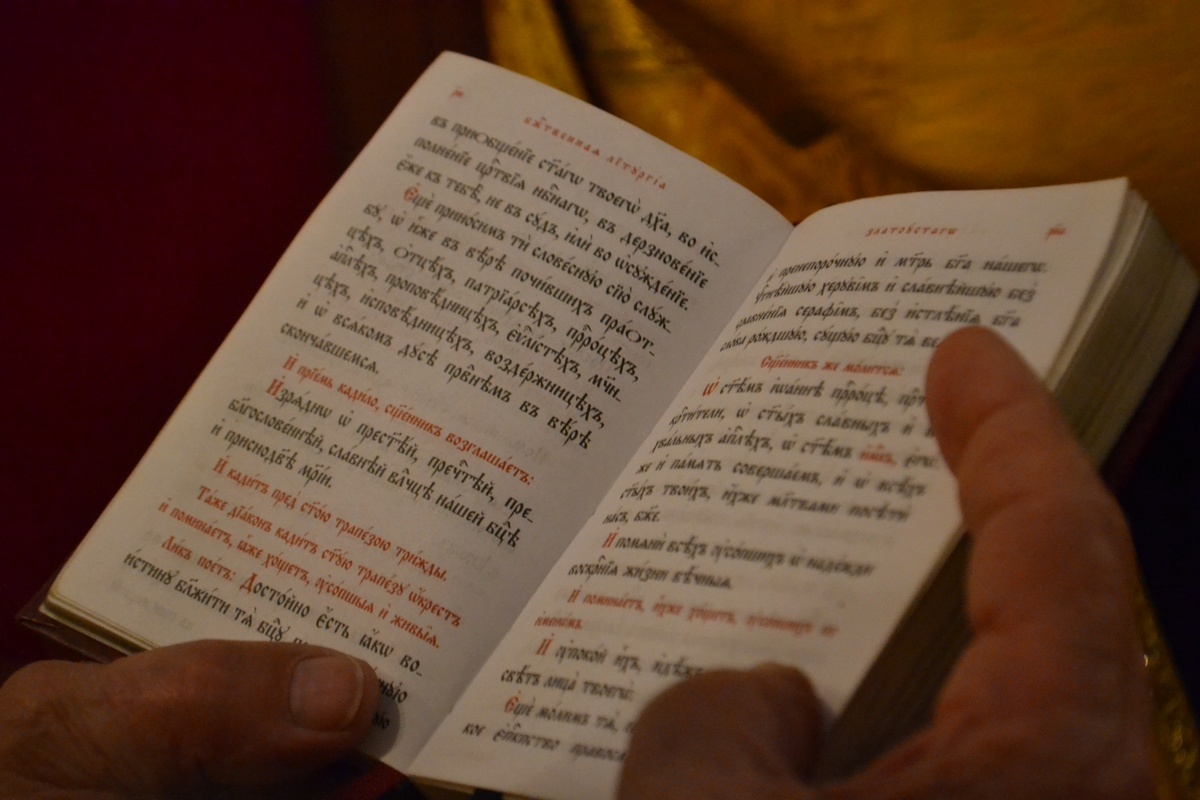 бж҃твеннаѧ лїтꙋргі́а
въ прїѡбще́нїе ст҃а́гѡ твоегѡ̀ дх҃а, во и҆с-
полне́нїе црⷭ҇твїѧ нбⷭ҇нагѡ, въ дерзнове́нїе
є҆́же къ тебѣ̀, не въ сꙋ́дъ, и҆лѝ во ѡ҆сꙋжде́нїе.
Є҆щѐ прино́симъ тѝ слове́снꙋю сїю̀ слꙋ́ж-
бꙋ, ѡ҆ и҆̀же въ вѣ́рѣ почи́вшихъ праѻт-
цѣ́хъ, ѻ҆тцѣ́хъ, патрїа́рсѣхъ, прⷪ҇ро́цѣхъ,
а҆пⷭ҇лѣхъ, проповѣ́дницѣхъ, є҆ѵⷢ҇лі́стѣхъ, мч҃ни-
цѣхъ, и҆сповѣ́дницѣхъ, возде́ржницѣхъ,
и҆ ѡ҆ всѧ́комъ дꙋ́сѣ првⷣнѣмъ въ вѣ́рѣ
сконча́вшемсѧ.
И҆ прїе́мь кади́ло, сщ҃е́нникъ возглаша́етъ:
И҆зрѧ́днѡ ѡ҆ прест҃ѣ́й, пречⷭ҇тѣй, пре-
блгⷭ҇ве́ннѣй, сла́внѣй влⷣчцѣ на́шей бцⷣѣ
и҆ приснодв҃ѣ мр҃і́и.
И҆ кади́тъ пред̾ ст҃о́ю трапе́зою три́жды.
Та́же дїа́конъ кади́тъ ст҃ꙋ́ю трапе́зꙋ ѡ҆́крестъ
и҆ помина́етъ, ꙗ҆̀же хо́щетъ, ᲂу҆со́пшыѧ и҆ живы̑ѧ.
Ли́къ пое́тъ: Досто́йно є҆́сть ꙗ҆́кѡ во-
и́стинꙋ бл҃жи́ти тѧ̀ бцⷣꙋ
златоꙋ́стагѡ
пренепоро́чнꙋю и҆ мт҃рь бг҃а на́шегѡ.
херꙋві̑мъ и҆ сла́внѣйшꙋю без̾
серафі̑мъ, без̾ и҆стлѣ́нїѧ бг҃а
сло́ва ро́ждшꙋю, сꙋ́щꙋю бцⷣꙋ тѧ̀
Сщ҃е́нникъ же мо́литсѧ:
Ѡ҆ ст҃ѣ́мъ і҆ѡа́ннѣ прⷪ҇ро́цѣ,
крⷭ҇ти́тели, ѡ҆ ст҃ы́хъ сла́вныхъ и҆
хва́льныхъ а҆пⷭ҇лѣхъ, ѡ҆ ст҃ѣ́мъ и҆́мⷬ҇къ,
же и҆ па́мѧть соверша́емъ, и҆ ѡ҆ всѣ́хъ
ст҃ы́хъ твои́хъ, и҆́хже мл҃твами посѣтѝ
на́съ, бж҃е.
И҆ помѧнѝ всѣ́хъ ᲂу҆со́пшихъ ѡ҆ наде́жди
воскрⷭ҇нїѧ жи́зни вѣ́чныѧ.
И҆ помина́етъ, и҆̀хже хо́щетъ, ᲂу҆со́пшихъ по
и҆менѡ́мъ.
И҆ ᲂу҆поко́й и҆̀хъ, и҆дѣ́же
свѣ́тъ лица̀ твоегѡ̀.
Є҆щѐ мо́лимъ тѧ̀,
кое є҆пⷭ҇кпство